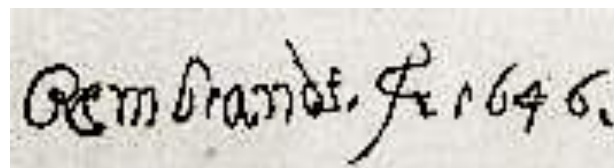 Rembrandt. f. 1646.